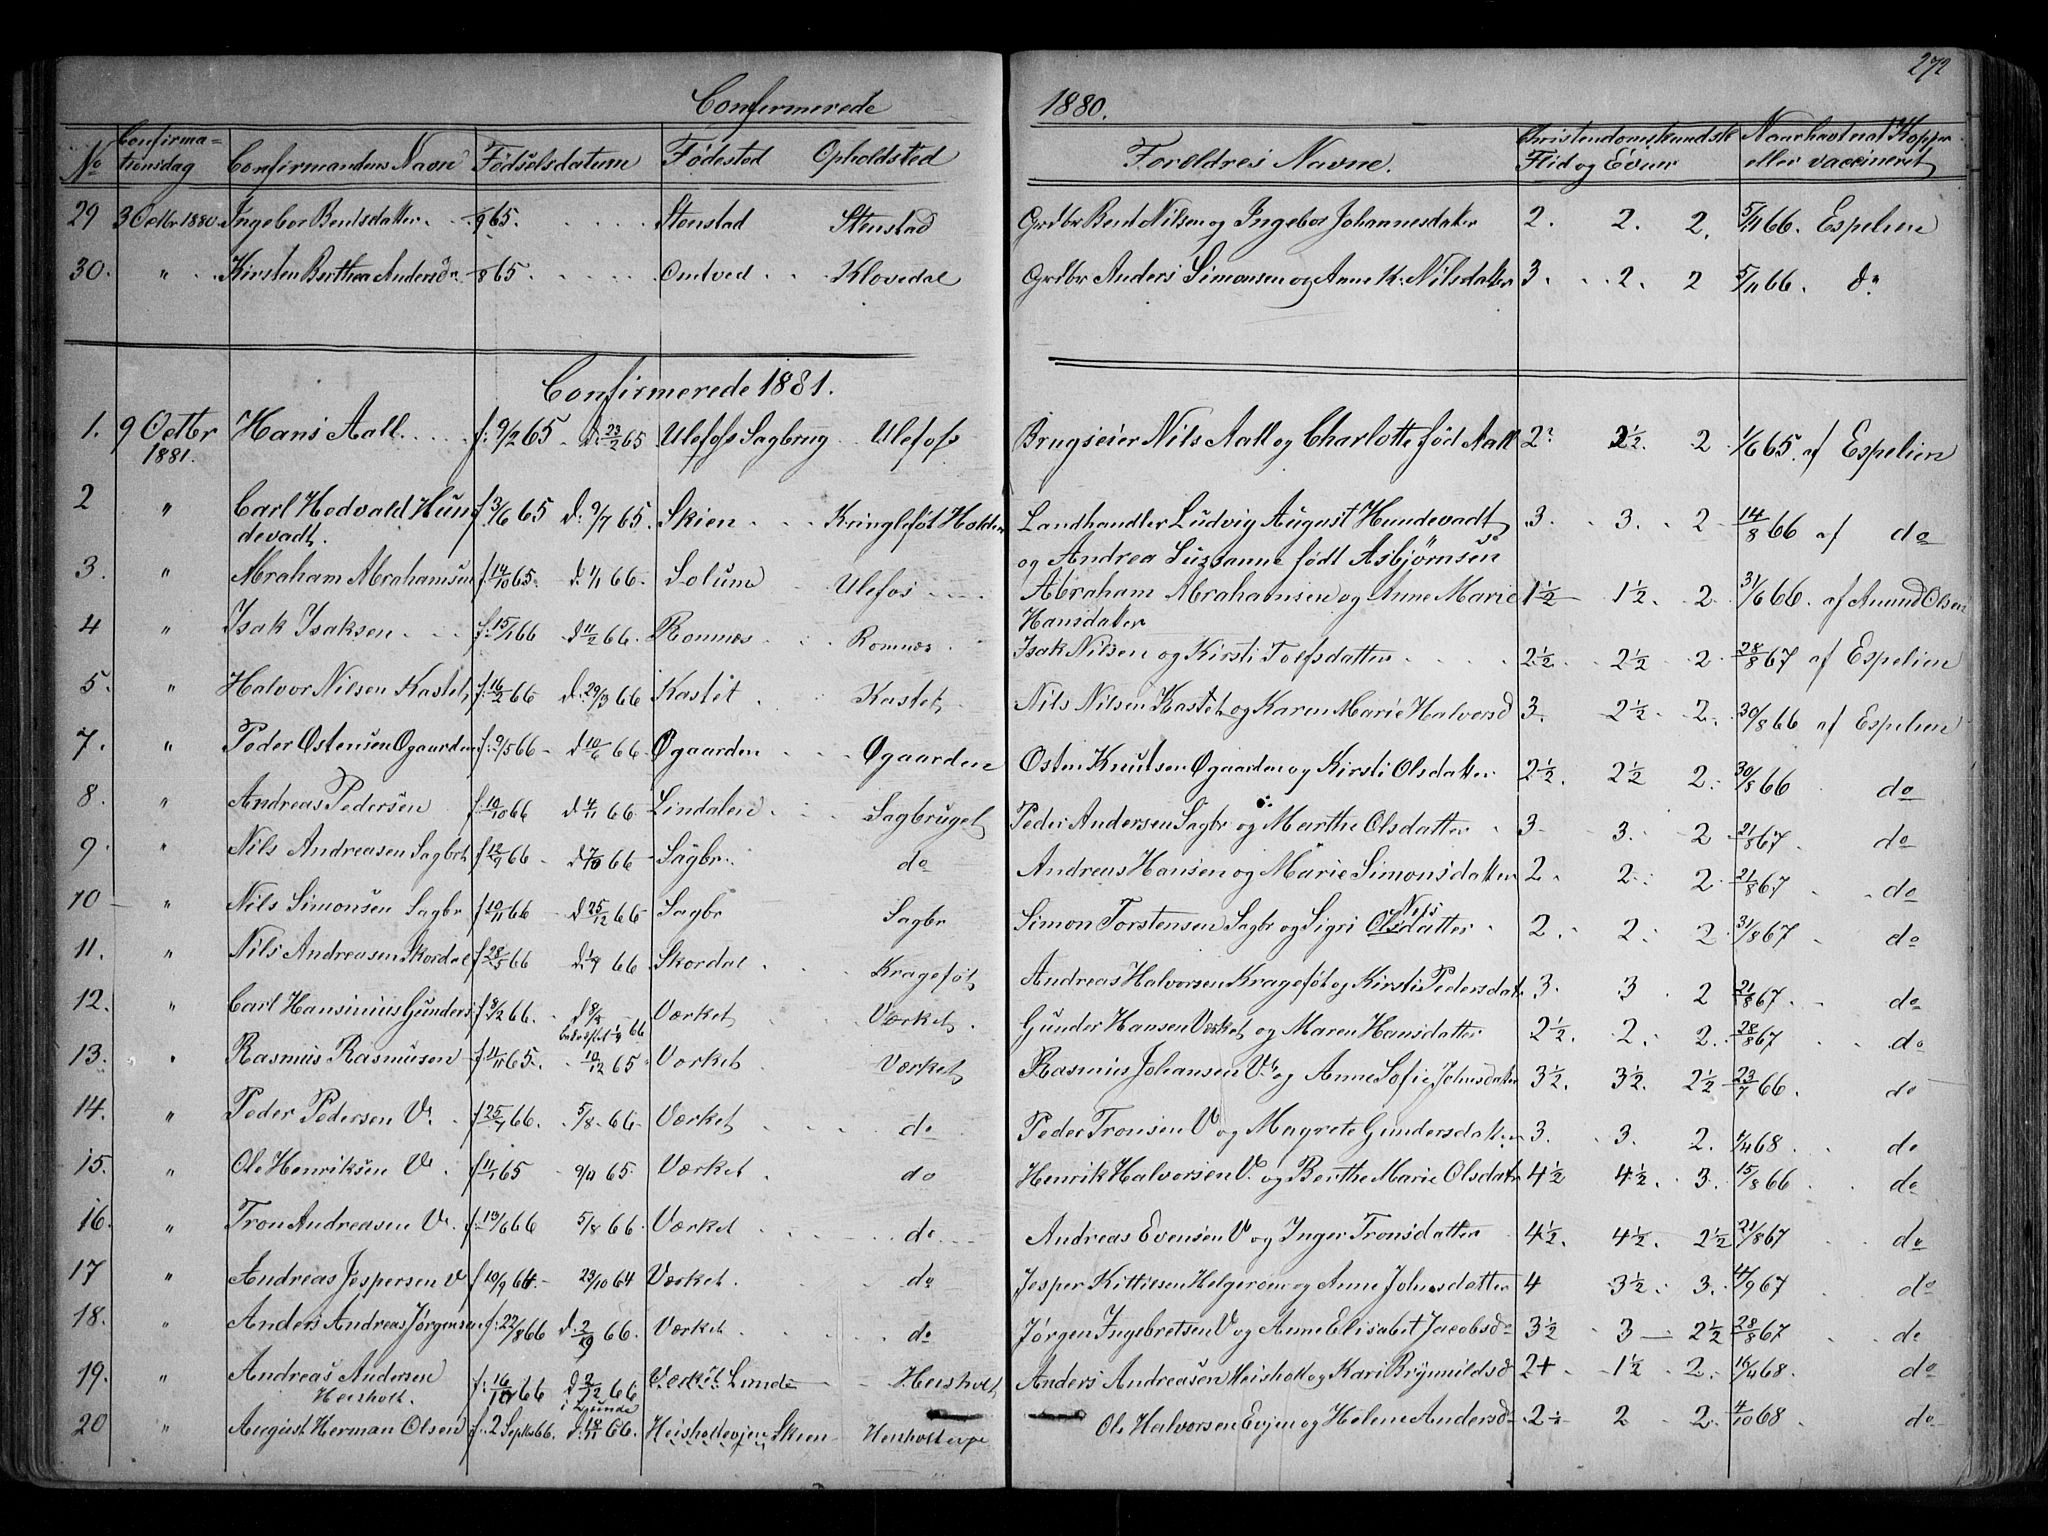 272
Confirmerede 1880.
No Confirma-tionsdag Confirmandens Navn Fødselsdatum Fødested Opholdsted Forældres Navne. Christendomskundsk Flid og Evner Naar havt nat. Kopper eller vaccineret
29 3 Octbr 1880. Ingebor Bentsdatter 65. Stenstad Stenstad Grdbr Bent Nilsen og Ingebor Johannesdatter 2. 2. 2. 5/11 66. Espelien
30. " Kirsten Berthea Andersdr 65. Omtved Klovedal Grdbr Anders Simonsen og Anne K. Nilsdatter 3. 2. 2 5/11 66. do
Confirmerede 1881.
1. 9 Octbr 1881. Hans Aall f: 9/2 65 d: 23/2 65 Ulefos Sagbrug Ulefos Brugseier Nils Aall og Charlotte född Aall 2 2½ 2 1/6 65. af Espelien
2 " Carl Hedvald Hun f 3/6 65 d: 9/7 65. Skien Kringleföt Holden Landhandler Ludvig August Hundevadt 3. 3. 2 14/8 66 af do
devadt. og Andrea Suzanne født Asbjørnsen
3. " Abraham Abrahamsen f: 14/10 65. d. 1/1 66. Solum Ulefos Abraham Abrahamsen og Anne Marie 1½ 1½. 2. 31/6 66. af Amund Olsen
Hansdatter
4 " Isak Isaksen f. 15/1 66 d 11/2 66. Romnæs Romnæs Isak Nilsen og Kirsti Tolfsdatter 2½ 2½ 2. 28/8 67 af Espelien
5. " Halvor Nilsen Kastet f: 16/2 66 d. 29/3 66 Kastet Kastet Nils Nilsen Kastet og Karen Marie Halvorsd 3. 2½ 2. 30/8 66 af Espelien
7. " Peder Østensen Øgaarden f: 9/5 66 d 10/6 66 Øgaarden Øgaarden Osten Knutsen Øgaarden og Kirsti Olsdatter 2½. 2½ 2. 30/8 66 do
8. " Andreas Pedersen f 10/10 66 d 4/11 66 Lindalen Sagbruget Peder Andersen Sagbr og Marthe Olsdatter 3. 3. 2 21/8 67. do
9. " Nils Andreasen Sagbrt f 12/9 66 d 7/10 66 Sagbr. do Andreas Hansen og Marie Simonsdatter 2. 2. 2. 21/8 67. do
10 " Nils Simonsen Sagbr f 10/11 66 d 25/12 66 Sagbr Sagbr Simon Torstensen Sagbr og Sigri Olsdatter Nils 2. 2. 2. 31/8 67 do
11. " Nils Andreasen Skordal f 28/5 66 d. 1/7 66 Skordal Kragefôt Andreas Halvorsen Kragefôt og Kirsti Pedersdat 3. 3. 2 21/8 67. do
12. " Carl Hansinius Gunders f 8/2 66. Værket Værket. Gunder Hansen Værket og Maren Hansdatter 2½. 2. 2. 28/8 67 do
13. " Rasmus Rasmusen f 11/11 65. 10/12 65 Værket Værket Rasmus Johansen V. og Anne Sofie Johnsdatter 3½. 3½. 2½ 23/7 66. do
14. " Peder Pedersen V. f 25/7 66. 5/8 66 Værket do Peder Tronsen V og Magrete Gundersdatter 3. 3. 2. 1/4 68. do
15. " Ole Henriksen V. f 11/1 65 9/4 65. Værket do Henrik Halvorsen V. og Berthe Marie Olsdatr 4½ 4½. 3. 15/8 66 do
16. " Tron Andreasen V. f. 13/6 66 5/8 66. Værket do Andreas Evensen V og Inger Tronsdatter 4½. 4½. 2½ 21/8 67 do
17 " Andreas Jespersen V f 10/9 64. 23/10 64 Værket. do Jesper Kittilsen Helgerom og Anne Johnsdatter 4 3½. 3. 4/9 67 do
18. " Anders Andreas Jørgensen f: 22/8 66 d. 2/9 66. Værket do Jørgen Ingebretsen V og Anne Elisabet Jacobsdr 3½ 3 2½ 28/8 67 do
19. " Andreas Andersen f: 16/10 66 d 2/12 66 Værket Lunde Heisholt Anders Andreasen Heisholt og Kari Brynuldsd 2+ 1½ 2. 16/4 68. do
Heisholt. i Lunde
20 " August Herman Olsen f. 2 Septbr 66. d. 18/11 66. Heisholtevjen Skien Heisholtevje Ole Halvorsen Evjen og Helene Andersd 2½ 2 2. 4/10 68. do